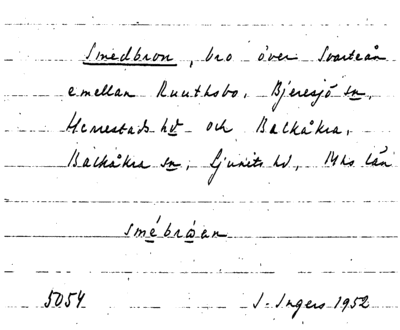 Smedbron, bro över Svarteån
emellan Ruuthsbo, Bjeresjö sn,
Herrestads hd och Balkåkra,
Balkåkra sn, Ljunits hd, Mhs län
Smébrǫan
5054 I. Ingers 1952